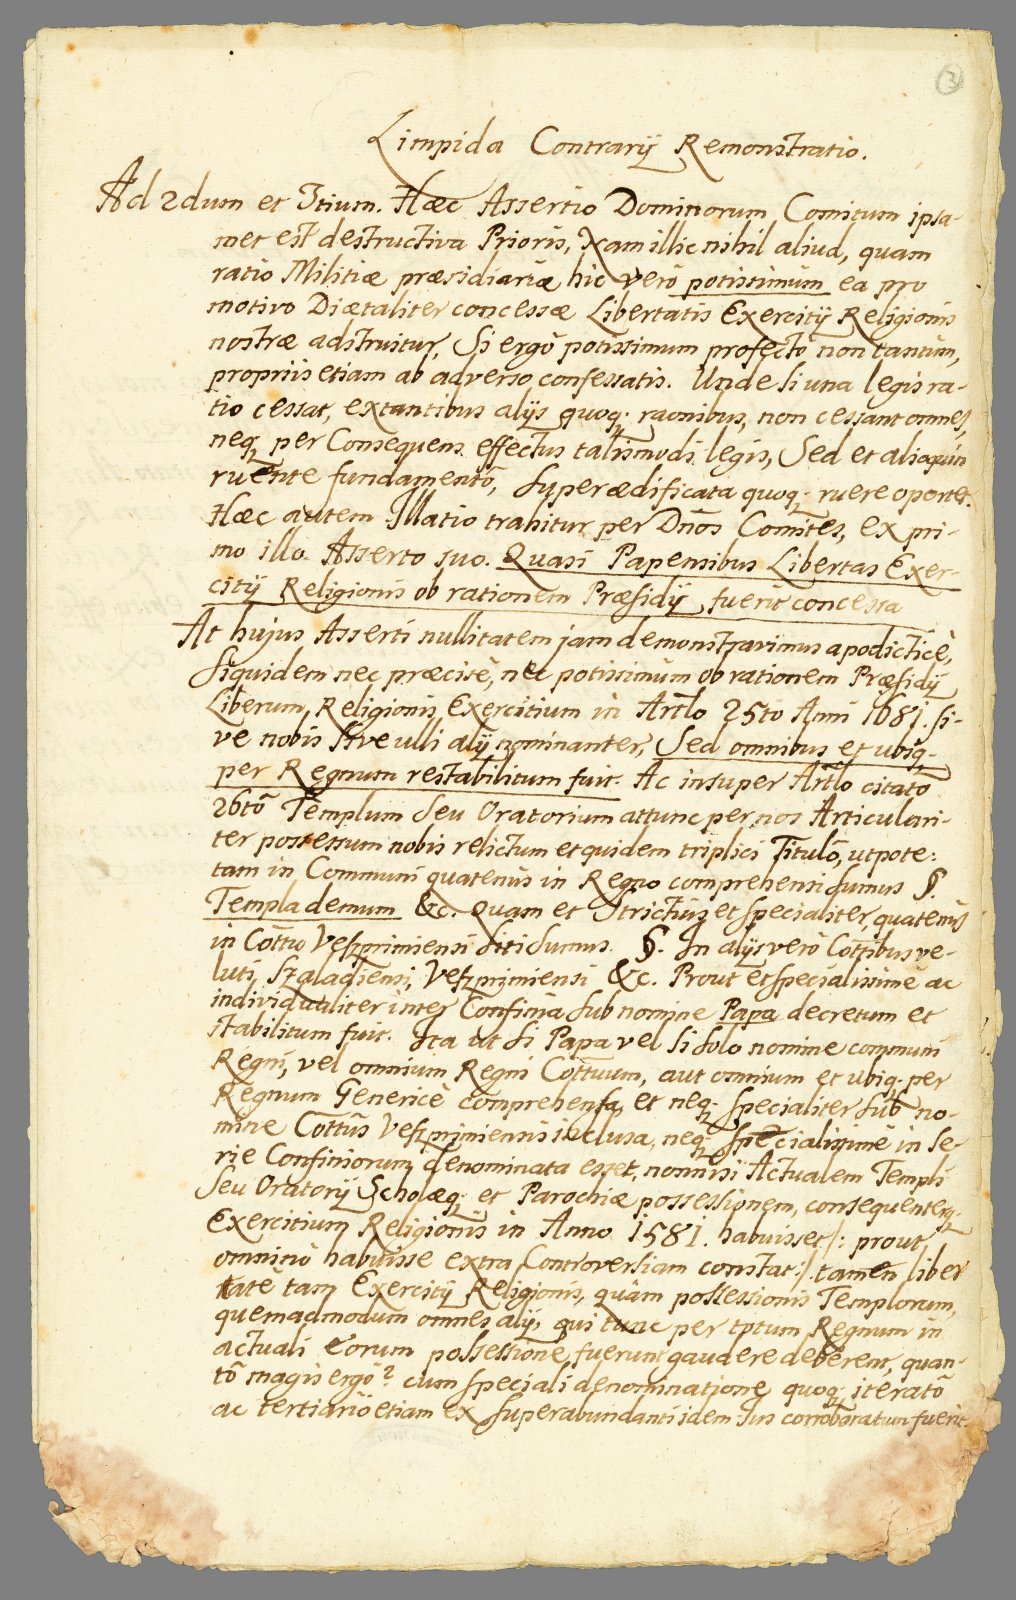 3
Limpida Contrarij Remonstratio.
Ad 2dum et 3tium. Hæc Assertio Dominorum Comitum ipsa-
met est destructiva Prioris, Nam illic nihil aliud, quam
ratio Militiæ præsidiariæ hic verò potissimùm ea pro
motivo Diætaliter concessæ Libertatis Exercitij Religionis
nostræ adstruitur, Si ergò potissimum profectò non tantùm,
propriis etiam ab adverso confessatis. Unde si una legis ra-
tio cessat, extantibus alijs quoq; raonibus, non cessant omnes,
neq; per Consequens effectus talismodi legis, Sed et alioquin
ruente fundamentô, superædificata quoq; ruere oportet.
Hæc autem Illatio trahitur per Dños Comites, ex pri-
mo illo Asserto suo. Quasi Papensibus Libertas Exer-
citij Religionis ob rationem Præsidij fuerit concessa
At hujus Asserti nullitatem jam demonstravimus apodicticè,
Siquidem nec præcisè, nec potissimùm ob rationem Præsidij
Liberum Religionis Exercitium in Artlo 25to Anni 1681. si-
ve nobis sive ulli alij nominanter, Sed omnibus et ubiq;
per Regnum restabilitum fuit. Ac insuper Artlo citatô
26tô Templum seu Oratorium attunc per nos Articulari-
ter possessum nobis relictum et quidem triplici Titulô, utpote:
tam in Communi quatenus in Regno comprehensi sumus §.
Templa demum &c. Quam et Strictiùs et specialiter, quatenus
in Cottu Veszprimiensi siti sumus. §. In alijs verò Cottibus ve-
luti, Szaladiensi, Veszprimiensi &c. Prout et specialissimè ac
individualiter inter Confinia sub nomine Papa decretum et
stabilitum fuit. Ita ut si Papa vel si solo nomine communi
Regni, vel omnium Regni Cottuum, aut omnium et ubiq; per
Regnum Genericè comprehensa, et neq; specialiter sub no-
mine Cottûs Veszprimiensis inclusa, neq; specialissimè in se-
rie Confiniorum denominata esset, nonnisi Actualem Templi
seu Oratorij Scholæq; et Parochiæ possessionem, consequenterq;
Exercitium Religionis in Anno 1581. habuisset /: prout
omninò habuisse extra Controversiam constat :/ tamen liber
tate tam Exercitij Religionis, quàm possessionis Templorum,
quemadmodum omnes alij, qui tunc per totum Regnum in
actuali eorum possessione fuerunt gaudere deberent, quan-
tô magis ergò? cum speciali denominatione quoq; iteratô
ac tertiariò etiam ex superabundanti idem Jus corroboratum fuerit.